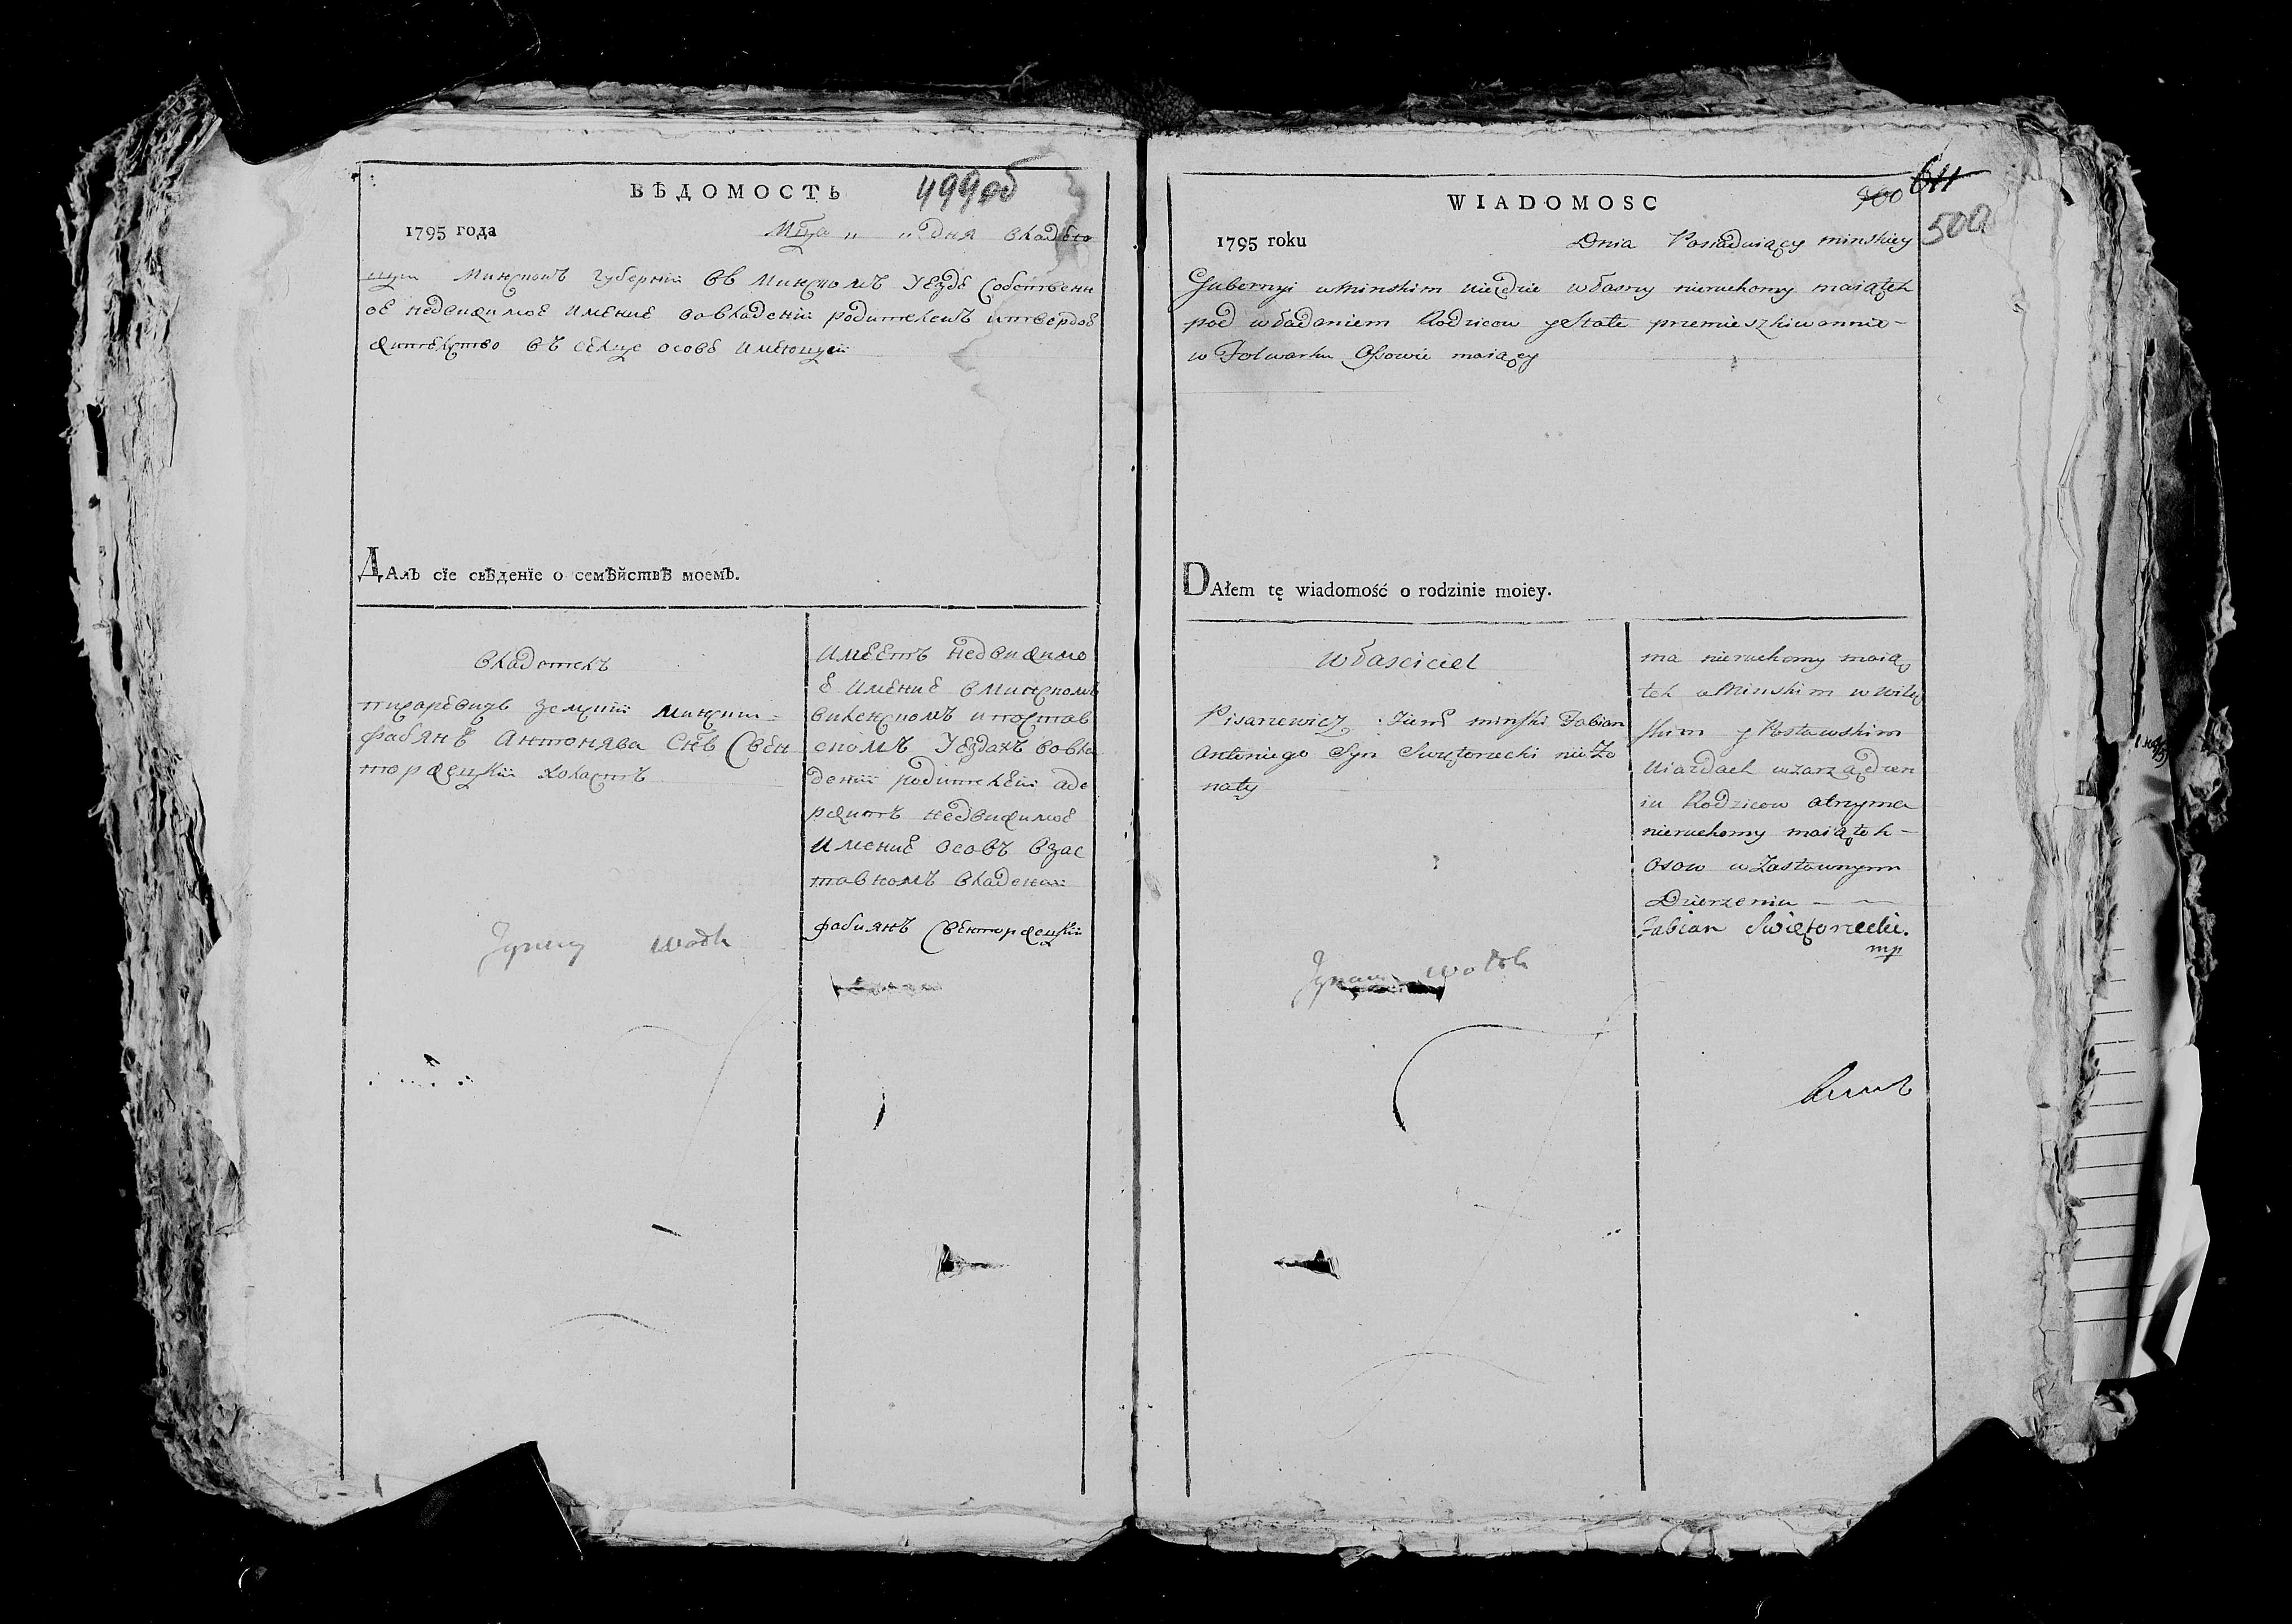 ВѢДОМОСТЬ 499об
1795 года Мѣца „ „ дня владею
щи Минскомъ губерніи въ Минскомъ Уезде Собственн
ое недвижимое имение вовладеніи родителемъ итвердое
жителство въ селце осове имеющеи
Далъ сїе свѣденїе о семѣйствѣ моемъ.
владетель
писаревичъ земскіи минскіи
фабянъ антонява Снъ Свен
торжецкіи холастъ
имеетъ недвижимо
е имение вминскомъ
виленскомъ ипостав
скомъ Уездахъ вовла
деніи родителеи аде
ржитъ недвижимое
имение осовъ взас
тавномъ владении
фабиянъ Свенторжецкіи
Jgnacy Wołk
WIADOMOSC 500 611
500
1795 roku Dnia Posiadaiący minskiey
Gubernyi w Minskim uiezdzie własny nieruchomy maiątek
pod władaniem Rodzicow y stałe przemieszkiwannie
w Folwarku Osowie maiący
DAłem tę wiadomość o rodzinie moiey.
właściciel
Pisarzewicz Ziem minski Fabian
Antoniego Syn Swiętorzecki nie Żo
naty
ma nieruchomy maią
tek w Minskim w Wiley
skim y Postawskim
Uiazdach w zarządzen
iu Rodzicow a trzyma
nieruchomy maiątek
Osow w Zastawnym
Dzierzeniu
Fabian Swiętorzecki.
mp
Jgnacy Wołk